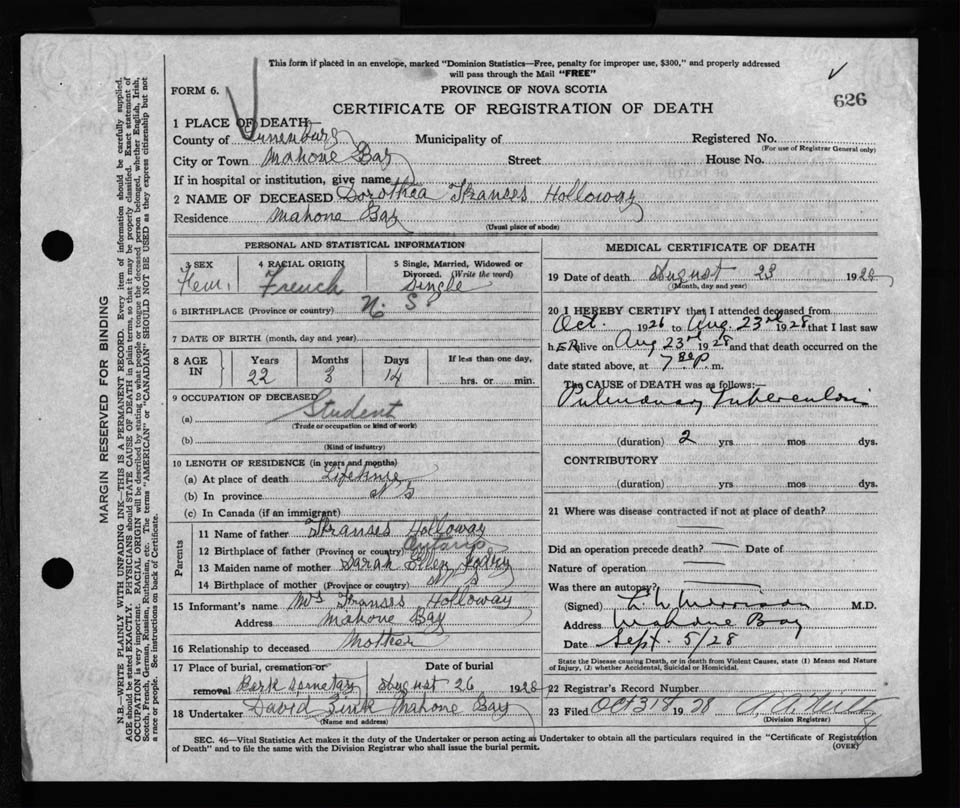 This form if placed in an envelope, marked "Dominion Statistics—Free, penalty for improper use, $300," and properly addressed
will pass through the Mail "FREE"
FORM 6.
PROVINCE OF NOVA SCOTIA
626
CERTIFICATE OF REGISTRATION OF DEATH
1 PLACE OF DEATH
County of Lunenburg Municipality of Registered No.
(For use of Registrar General only)
City or Town Mahone Bay Street House No.
If in hospital or institution, give name
2 NAME OF DECEASED Dorothea Franses Holloway
Residence Mahone Bay
(Usual place of abode)
PERSONAL AND STATISTICAL INFORMATION
3 SEX 4 RACIAL ORIGIN 5 Single, Married, Widowed or
Divorced. (Write the word)
Fem. French Single
6 BIRTHPLACE (Province or country) N. S
7 DATE OF BIRTH (month, day and year)
8 AGE IN Years Months Days If less than one day,
22 3 14 hrs. or min.
9 OCCUPATION OF DECEASED
(a) Student
(Trade or occupation or kind of work)
(b)
(Kind of industry)
10 LENGTH OF RESIDENCE (in years and months)
(a) At place of death Lifetime
(b) In province N S
(c) In Canada (if an immigrant)
Parents
11 Name of father Franses Holloway
12 Birthplace of father (Province or country) Ontario
13 Maiden name of mother Sarah Ellen
14 Birthplace of mother (Province or country) N S
15 Informant's name Mrs Franses Holloway
Address Mahone Bay
16 Relationship to deceased Mother
17 Place of burial, cremation or Date of burial
removal Park Semetary August 26 1928
18 Undertaker David Zink Mahone Bay
(Name and address)
MEDICAL CERTIFICATE OF DEATH
19 Date of death August 23 1928
(Month, day and year)
20 I HEREBY CERTIFY that I attended deceased from
Oct. 1926 to Aug. 23rd 1928 that I last saw
h ER alive on Aug 23rd 1928 and that death occurred on
date stated above, at 7 p. m.
The CAUSE of DEATH was as follows:—
Pulmonary Tuberculosis
(duration) 2 yrs mos dys.
CONTRIBUTORY
(duration) yrs mos dys.
21 Where was disease contracted if not at place of death?
Did an operation precede death? — Date of
Nature of operation —
Was there an autopsy? —
(Signed) M.D.
Address Mahone Bay
Date Sept. 5/28
State the Disease causing Death, or in death from Violent Causes, state (1) Means and Nature
of Injury, (2) whether Accidental, Suicidal or Homicidal.
22 Registrar's Record Number
23 Filed Oct 31 1928
(Division Registrar)
SEC. 46—Vital Statistics Act makes it the duty of the Undertaker or person acting as Undertaker to obtain all the particulars required in the "Certificate of Registration
of Death" and to file the same with the Division Registrar who shall issue the burial permit.
(OVER)
MARGIN RESERVED FOR BINDING
N.B.—WRITE PLAINLY WITH UNFADING INK—THIS IS A PERMANENT RECORD. Every item of information should be carefully supplied.
AGE should be stated EXACTLY. PHYSICIANS should STATE CAUSE OF DEATH in plain terms, so that it may be properly classified. Exact statement of
OCCUPATION is very important. RACIAL ORIGIN will be described by stating to what people or tongue the deceased person belonged, whether English, Irish,
Scotch, French, German, Russian, Ruthenian, etc. The terms "AMERICAN" or "CANADIAN" SHOULD NOT BE USED as they express citizenship but not
a race or people. See instructions on back of Certificate.